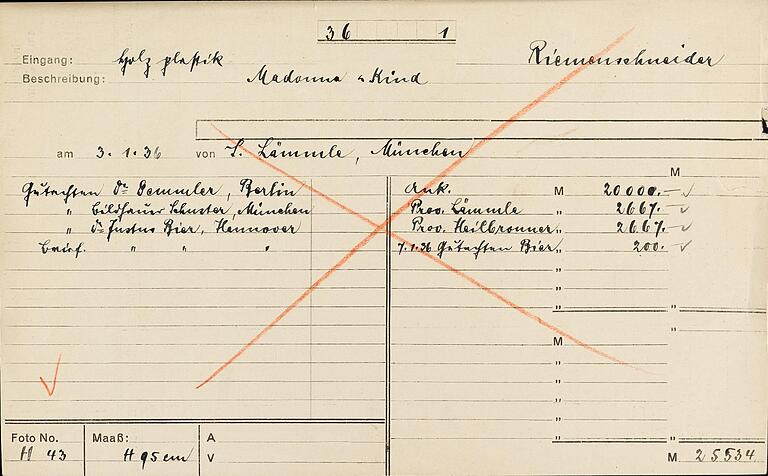 36 1
Eingang: Holzplastik Riemenschneider
Beschreibung: Madonna u Kind
am 3.1.36 von S. Lämmle, München
M
Gutachten Dr Demmler, Berlin Ank. M 20 000.— ✓
" Bildhauer Schuster, München Prov. Lämmle " 2 667.— ✓
" Dr Justus Bier, Hannover Prov. Heilbronner " 2 667.— ✓
" " " 7.1.36 Gutachten Bier " 200.— ✓
" "
"
" "
"
M
"
"
"
"
" "
Foto No. Maaß: A
H 43 H 95 cm V M 25534